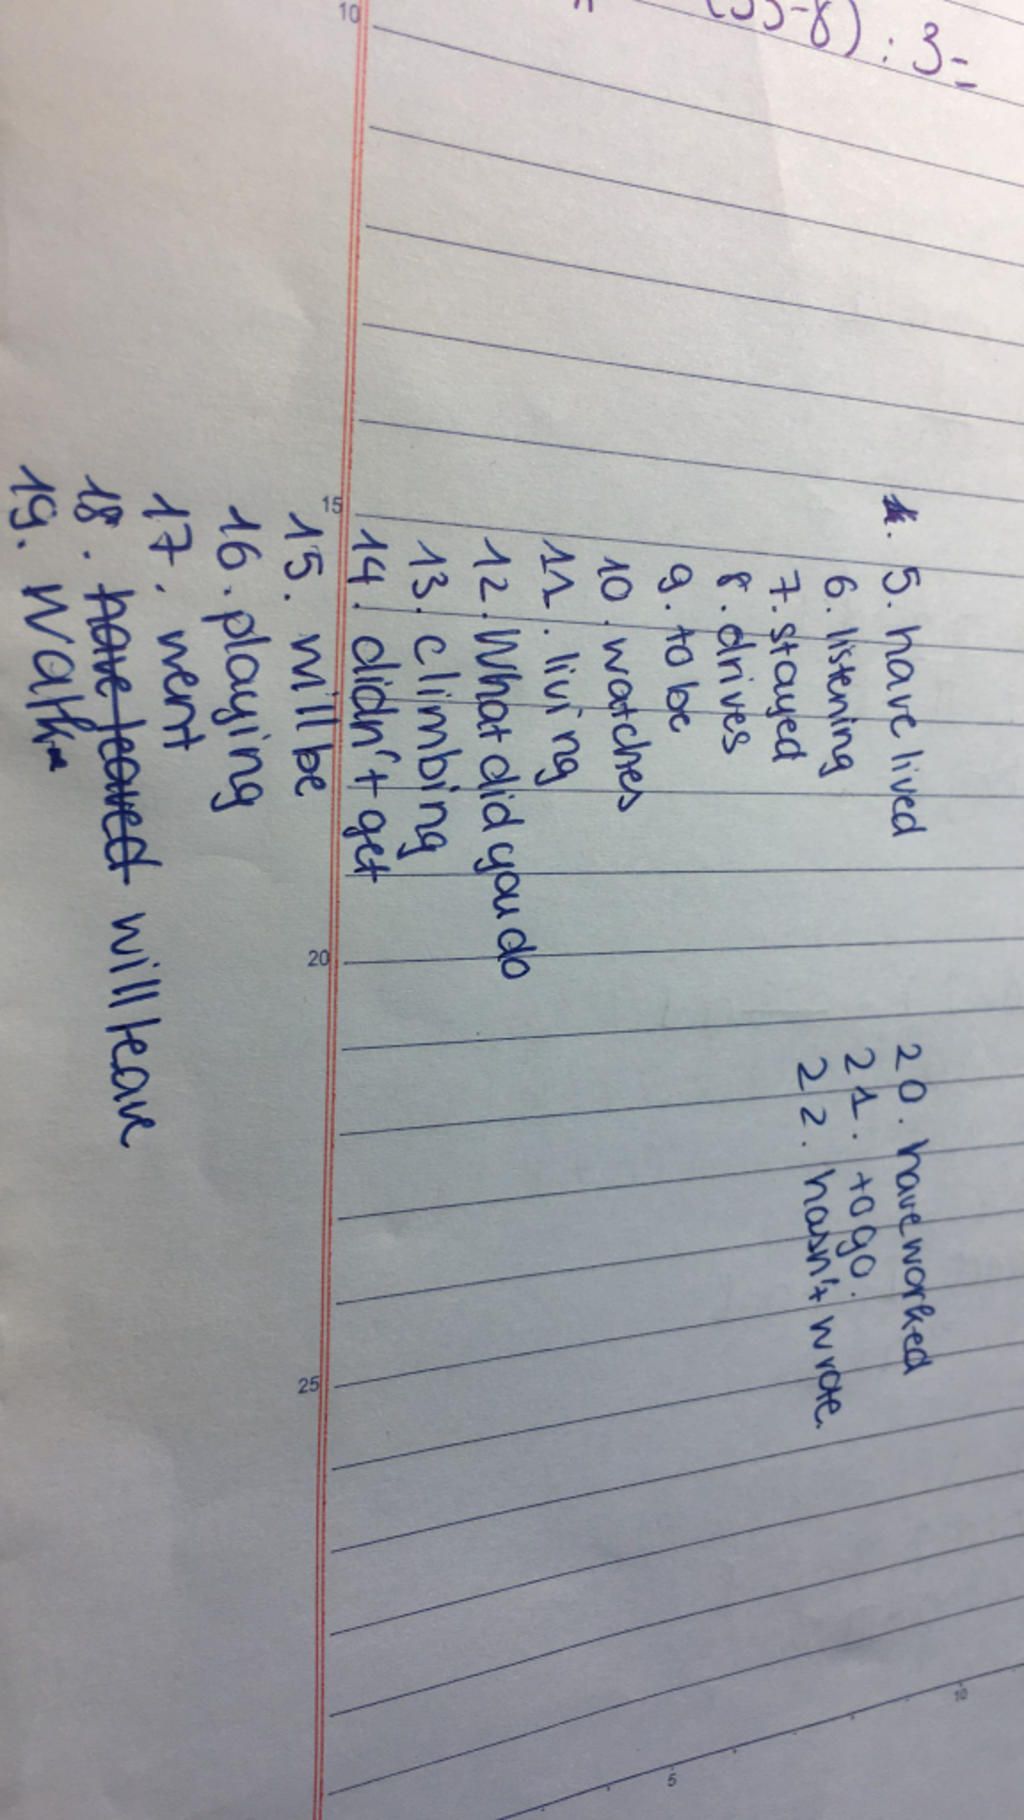 (35-8) : 3=
5. have lived
6. listening
7. stayed
8. drives
9. to be
10. watches
11. living
12. What did you do
13. climbing
14. didn't get
15. will be
16. playing
17. went
18. have leaved will leave
19. Walk
20. have worked
21. to go.
22. hasn't wrote.
10
15
20
25
5
10